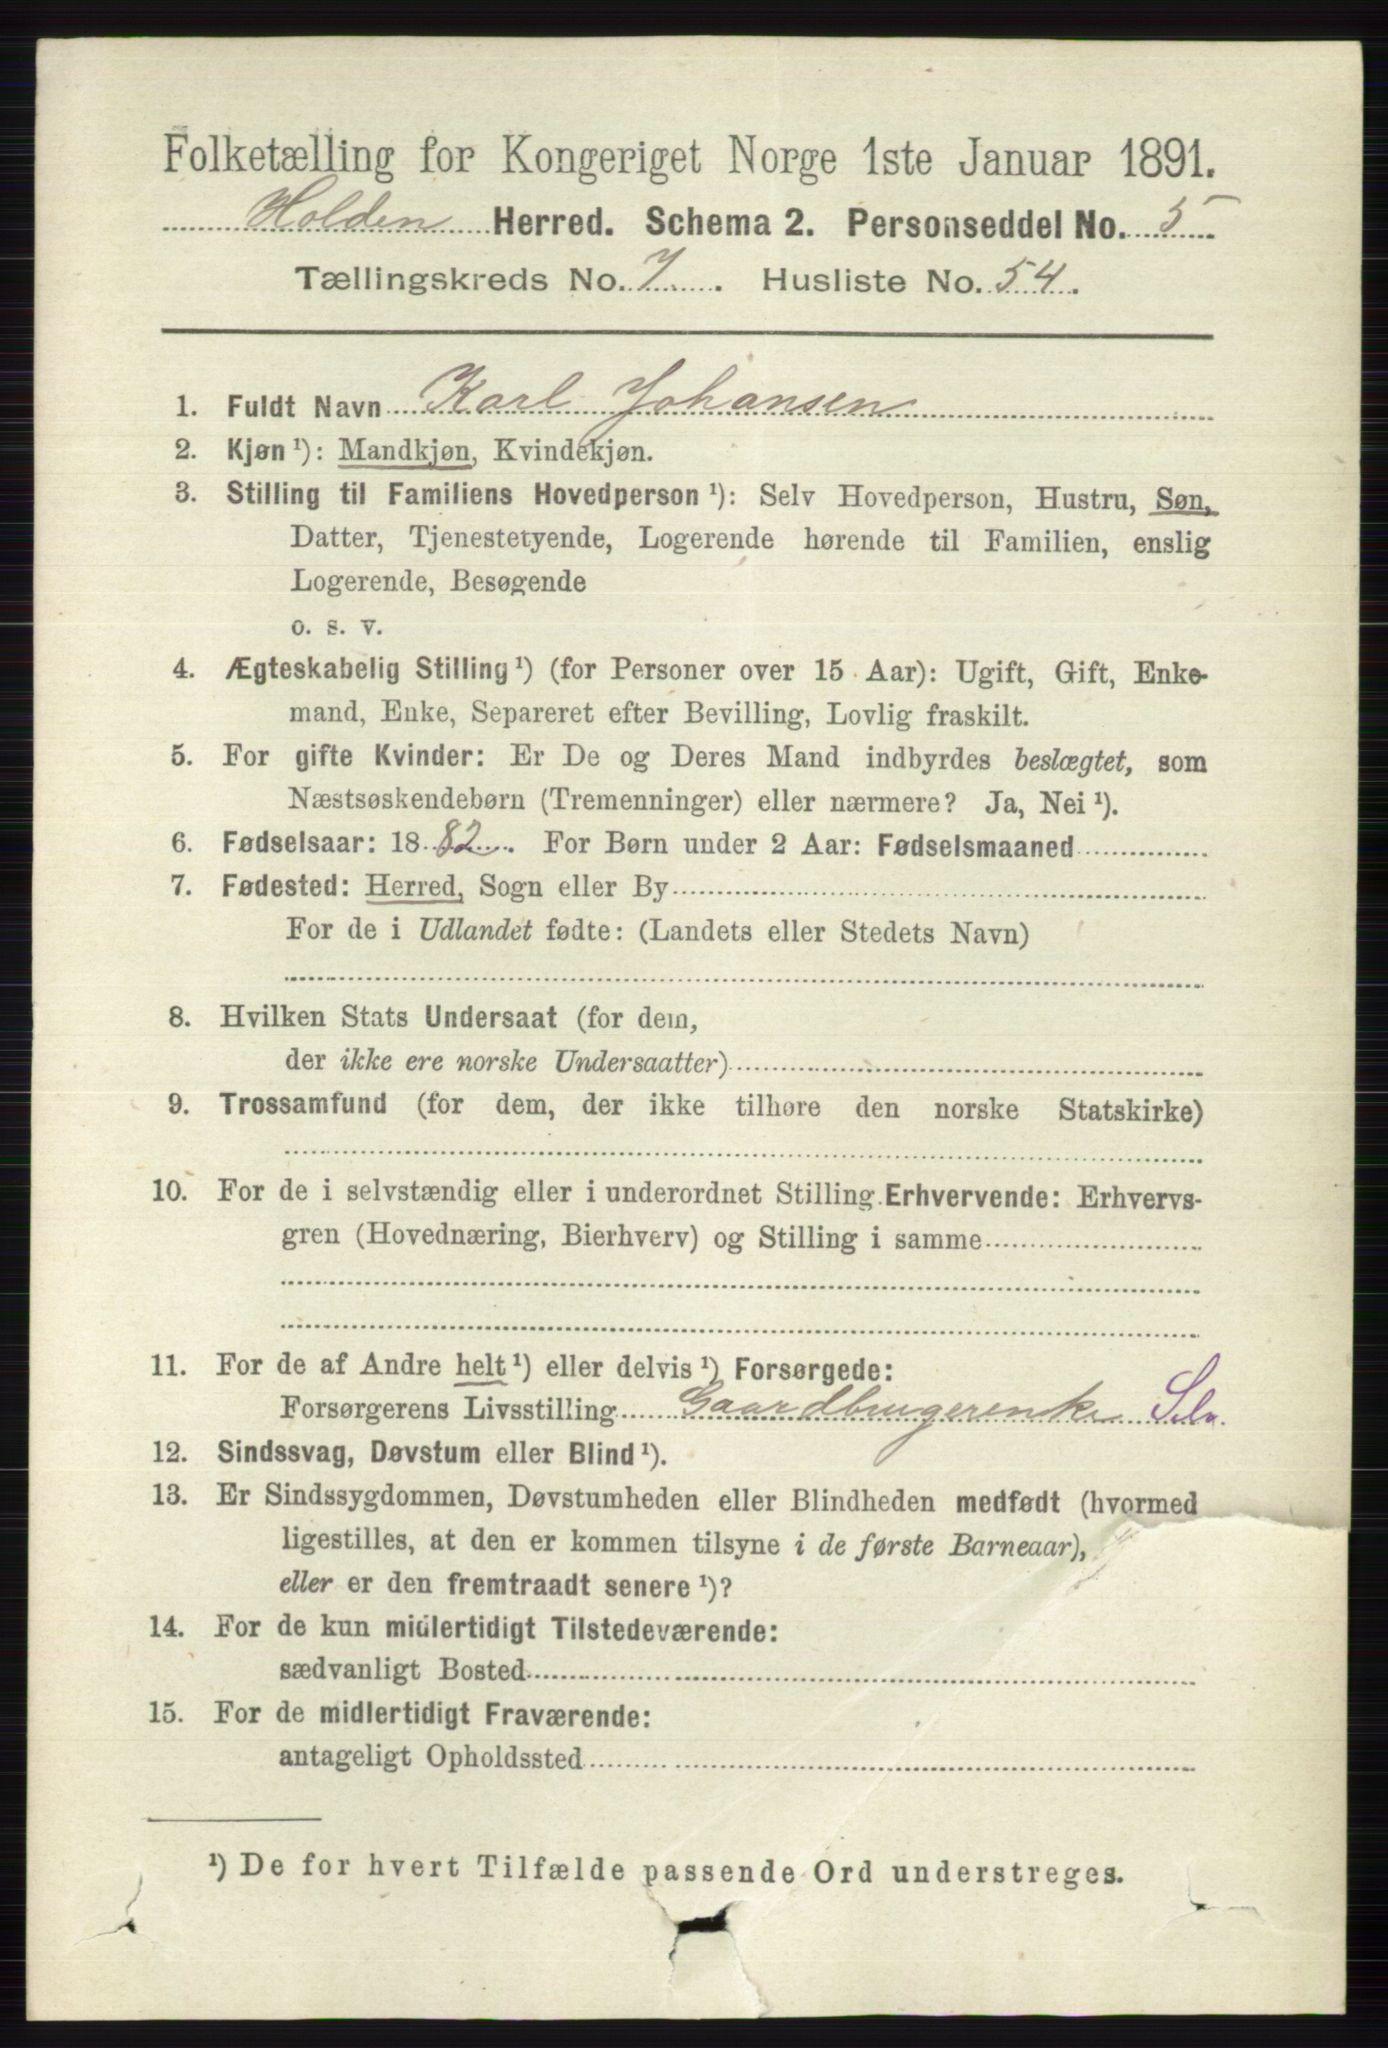 Folketælling for Kongeriget Norge 1ste Januar 1891.
Holden Herred. Schema 2. Personseddel No. 5
Tællingskreds No. 7. Husliste No. 54.
1. Fuldt Navn Karl Johansen
2. Kjøn ¹): Mandkjøn, Kvindekjøn.
3. Stilling til Familiens Hovedperson ¹): Selv Hovedperson, Hustru, Søn,
Datter, Tjenestetyende, Logerende hørende til Familien, enslig
Logerende, Besøgende
o. s. v.
4. Ægteskabelig Stilling ¹) (for Personer over 15 Aar): Ugift, Gift, Enke-
mand, Enke, Separeret efter Bevilling, Lovlig fraskilt.
5. For gifte Kvinder: Er De og Deres Mand indbyrdes beslægtet, som
Næstsøskendebørn (Tremenninger) eller nærmere? Ja, Nei ¹).
6. Fødselsaar: 1882. For Børn under 2 Aar: Fødselsmaaned
7. Fødested: Herred, Sogn eller By
For de i Udlandet fødte: (Landets eller Stedets Navn)
8. Hvilken Stats Undersaat (for dem,
der ikke ere norske Undersaatter)
9. Trossamfund (for dem, der ikke tilhøre den norske Statskirke)
10. For de i selvstændig eller i underordnet Stilling Erhvervende: Erhvervs-
gren (Hovednæring, Bierhverv) og Stilling i samme
11. For de af Andre helt ¹) eller delvis ¹) Forsørgede:
Forsørgerens Livsstilling Gaardbrugerenke Selv.
12. Sindssvag, Døvstum eller Blind ¹).
13. Er Sindssygdommen, Døvstumheden eller Blindheden medfødt (hvormed
ligestilles, at den er kommen tilsyne i de første Barneaar),
eller er den fremtraadt senere ¹)?
14. For de kun midlertidigt Tilstedeværende:
sædvanligt Bosted
15. For de midlertidigt Fraværende:
antageligt Opholdssted
¹) De for hvert Tilfælde passende Ord understreges.